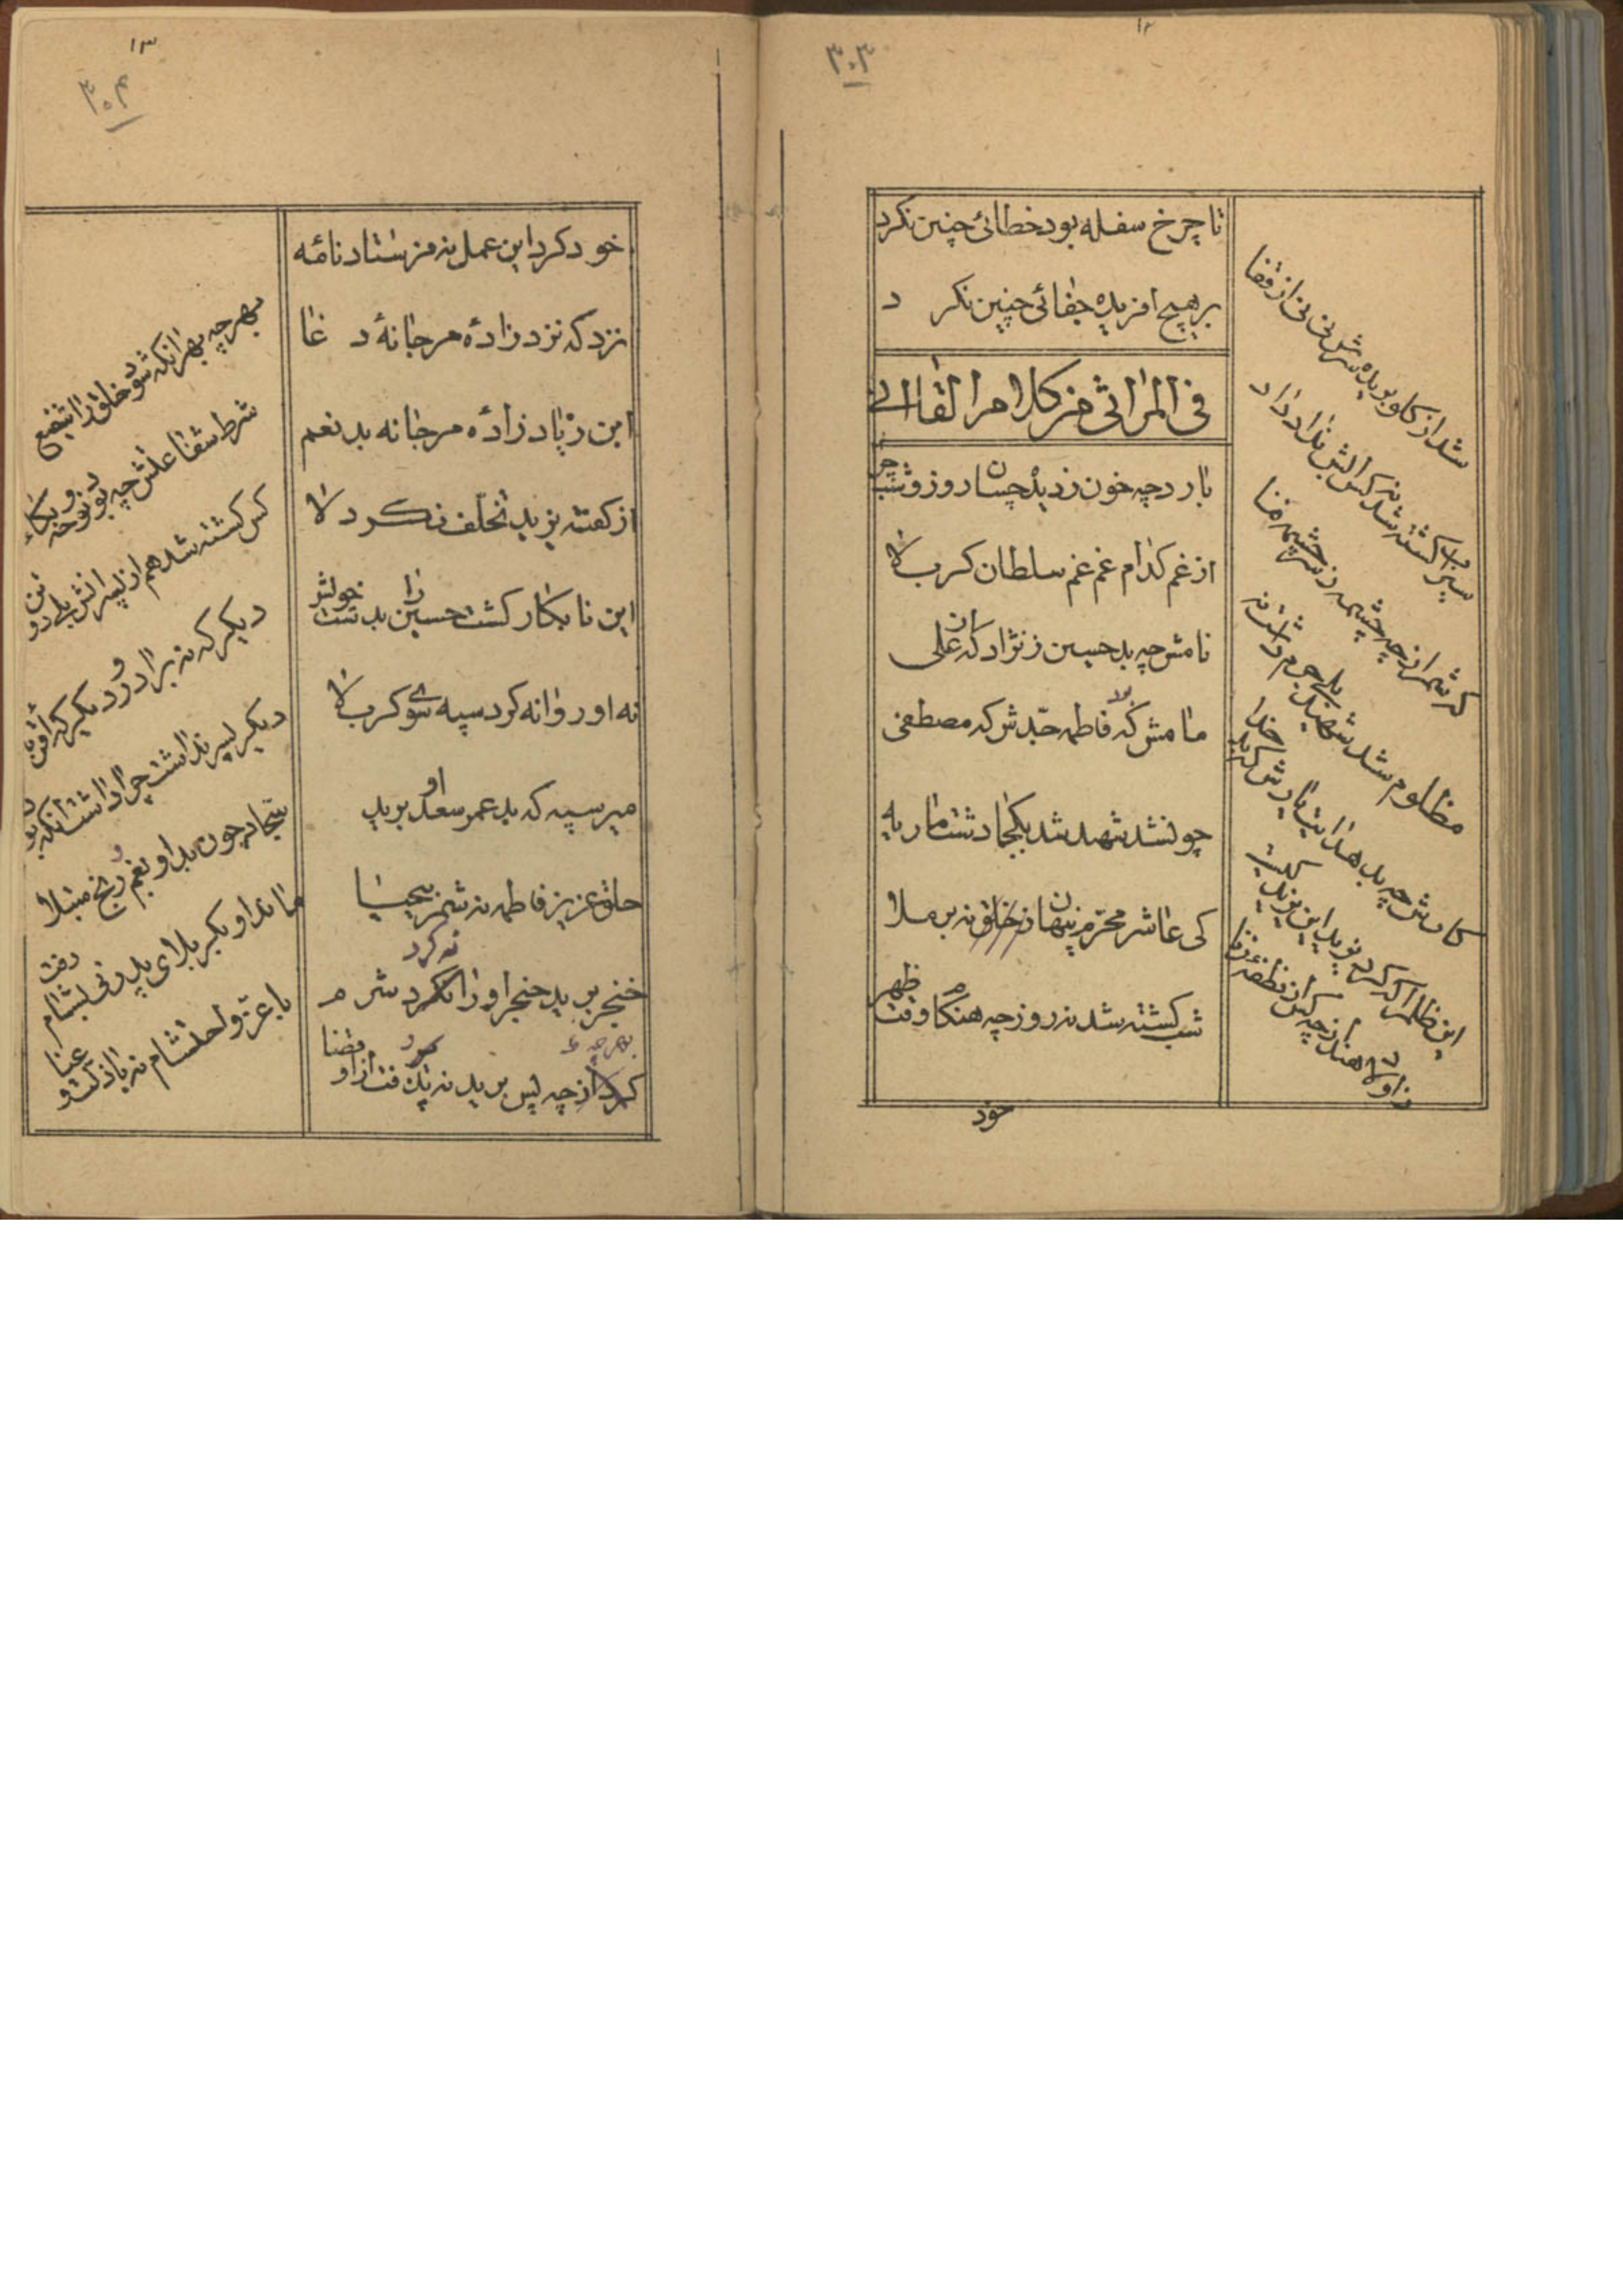 ۱۲
۳۰۳
تا چرخ سفله بود خطائی چنین نکرد
بر هیچ افریده جفائی چنین نکر د
فی المراثی من کلام القاانی
بارد چه خون ز دیده چسان روز و شب چرا
از غم کدام غم غم سلطان کربلا
نامش چه بد حسین ز نژاد که از علی
مامش که فاطمه جدش که مصطفی
چون شد شهید شد بکجا دشت ماریه
کی عاشر محرم پنهان ز خلق نه بر ملا
شب کشته شد نه روز چه هنگام وقت ظهر
شد از کلو بریده سرش نی نی از قفا
سیراب کشته شد نه کس ابش نداد داد
که شمر از چه چشمه ز سرچشمه فنا
مظلوم شد شهید بلی جرم داشت نه
کارش چه بد هدایت یارش که بد خدا
این ظلم را که کرد یزید این یزید کیست
ز اولاد هند از چه کس از نطفه زنا
خود
۱۳
۳۰۴
خود کرد این عمل نه فرستاد نامه
نزد که نزد زاده مرجانه د غا
ابن زیاد زاده مرجانه بد نعم
از کفته یزید تخلف نکرد لا
این نابکار کشت حسین را بدست خویش
نه او روانه کرد سپه سوی کربلا
میر سپه که بد عمر سعد او برید
حلق عزیز فاطمه نه شمر بیحیا
خنجر برید حنجر او را نکرد شرم
نه کرد
کرد از چه پس برید نپذیرفت از او قضا
بهر چه
بهر چه بهر انکه شود خلق را شفیع
شرط شفاعتش چه بود نوحه و بکاء
کس کشته شد هم از پسرانش بلی دو تن
دیکر که نه برادر و دیکر که اقربا
دیکر پسر نداشت چرا داشت انکه بود
سجاد چون بد او بغم و رنج مبتلا
ماند او بکربلای پدر نی بشام رفت
با عز و احتشام نه با ذلت و عنا